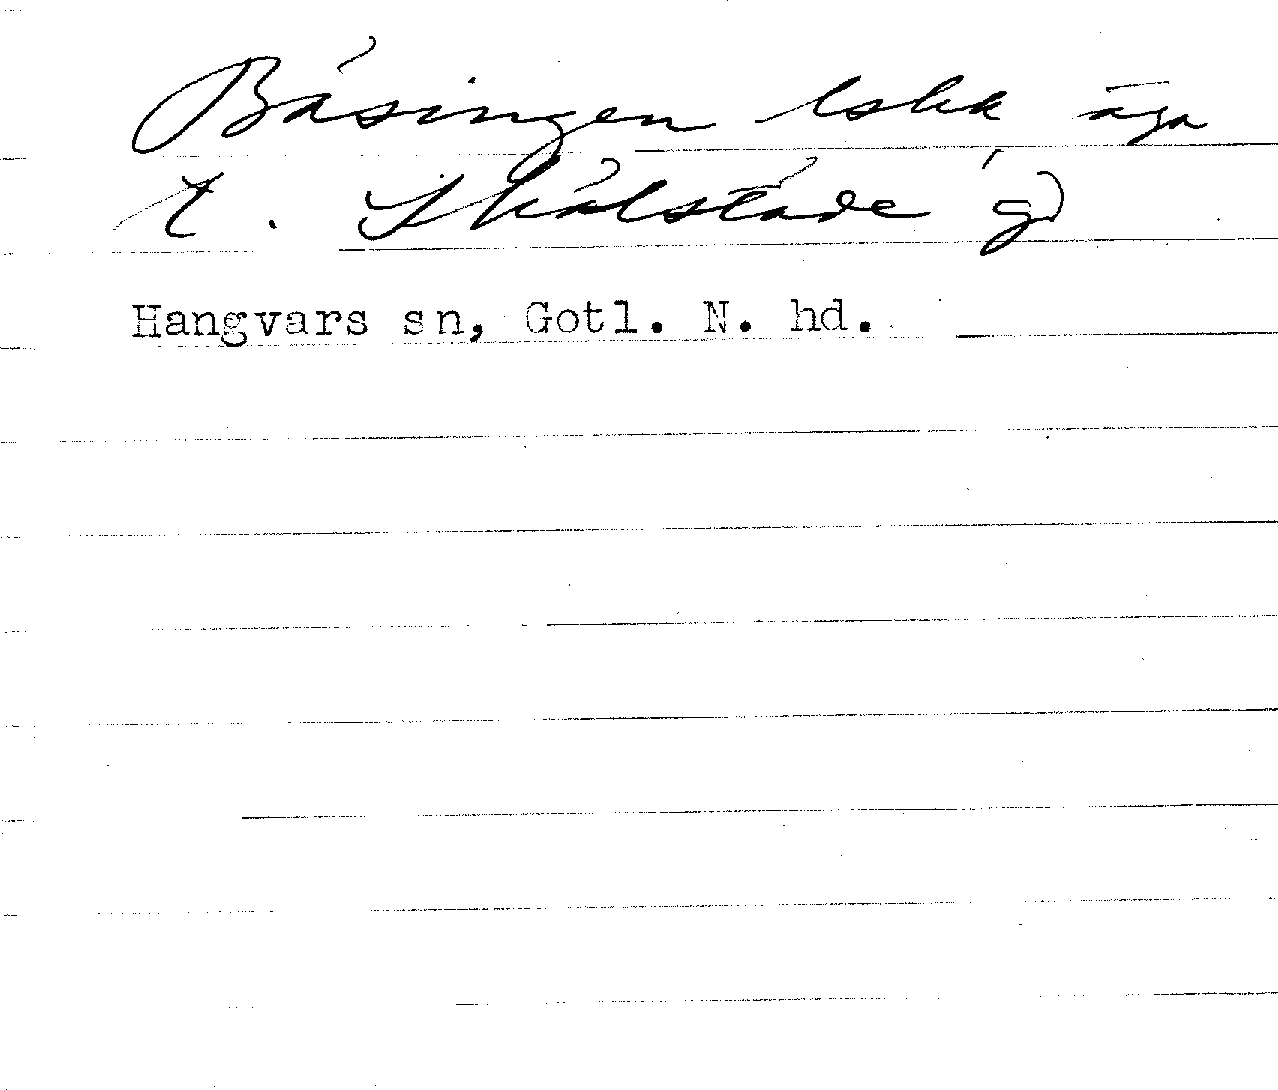 Båsingen lskk äga
t. Skälstäde gd
Hangvars sn, Gotl. N. hd.